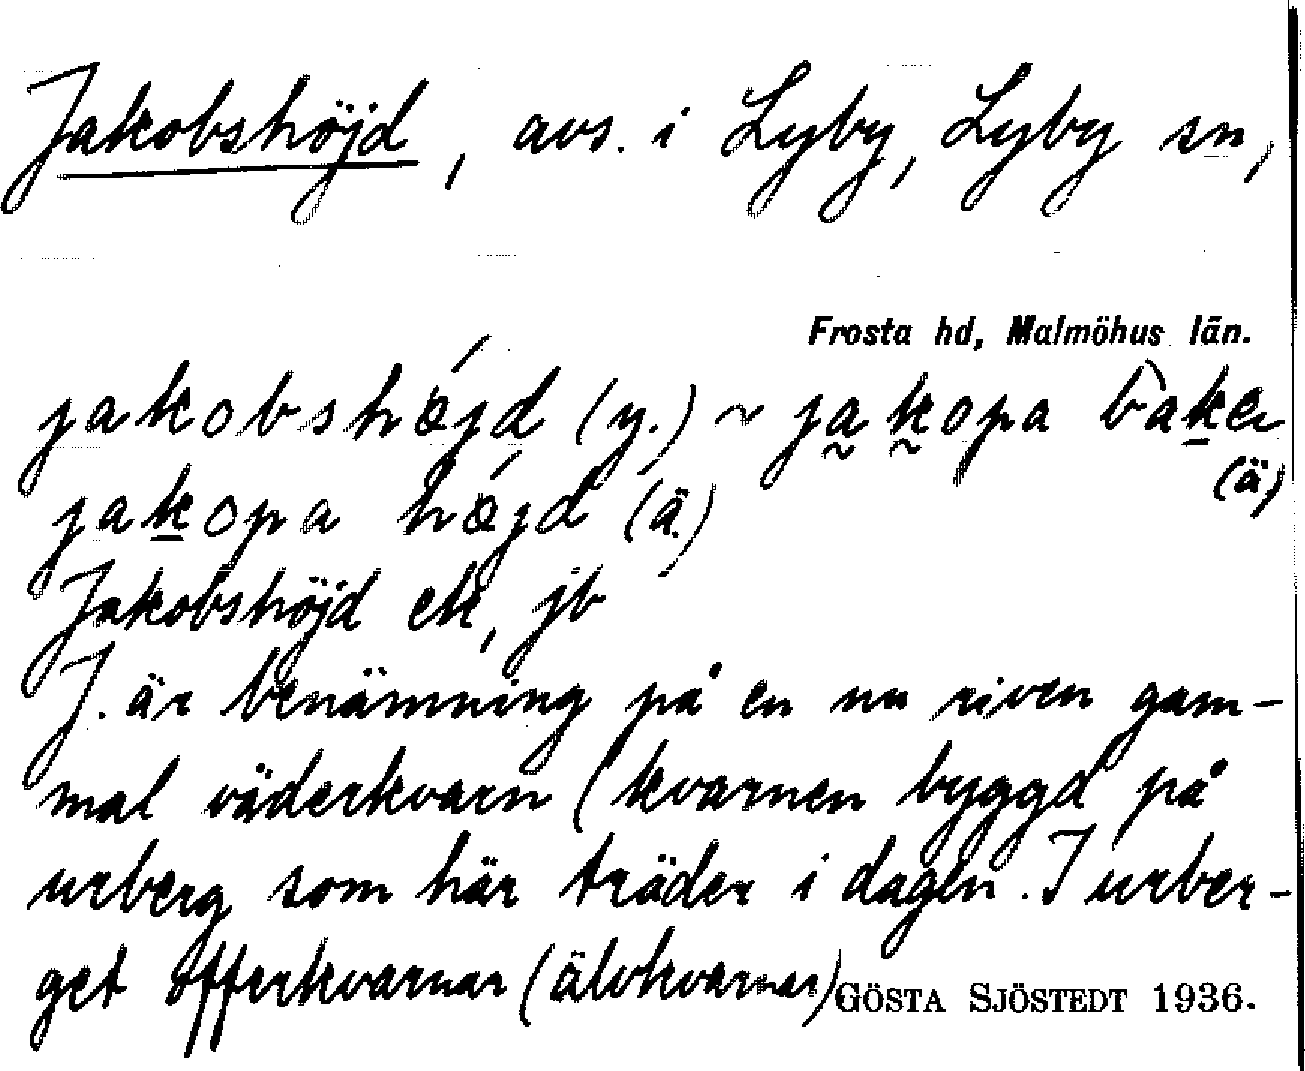 Jakobshöjd, avs. i Lyby, Lyby sn,
Frosta hd, Malmöhus län.
jakobshǿjd (y.) ~ ja̰k̰opa bake̱r
(ä)
jaḵopa hǿjd (ä.)
Jakobshöjd ek, jb
J. är benämning på en nu riven gam-
mal väderkvarn (kvarnen byggd på
urberg som här träder i dagen. I urber-
get offerkvarnar (älvkvarnar)
GÖSTA SJÖSTEDT 1936.